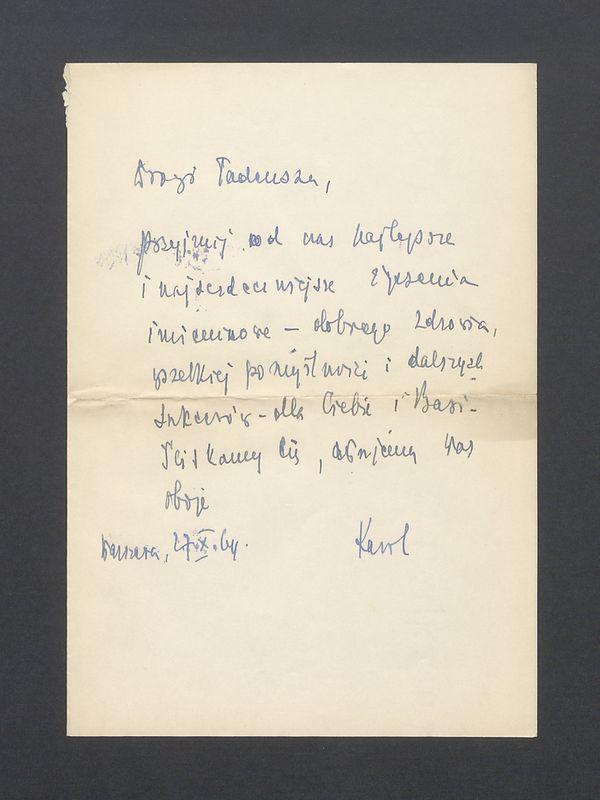 Drogi Tadeuszu,
przyjmij od nas najlepsze
i najserdeczniejsze życzenia
imieninowe – dobrego zdrowia,
wszelkiej pomyślności i dalszych
sukcesów – dla Ciebie i Basi.
Ściskamy Cię, całujemy Was
oboje
Warszawa, 27.X.64.
Karol